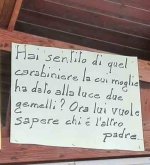 Hai sentito di quel
carabiniere la cui moglie
ha dato alla luce due
gemelli? Ora lui vuole
sapere chi è l'altro
padre.